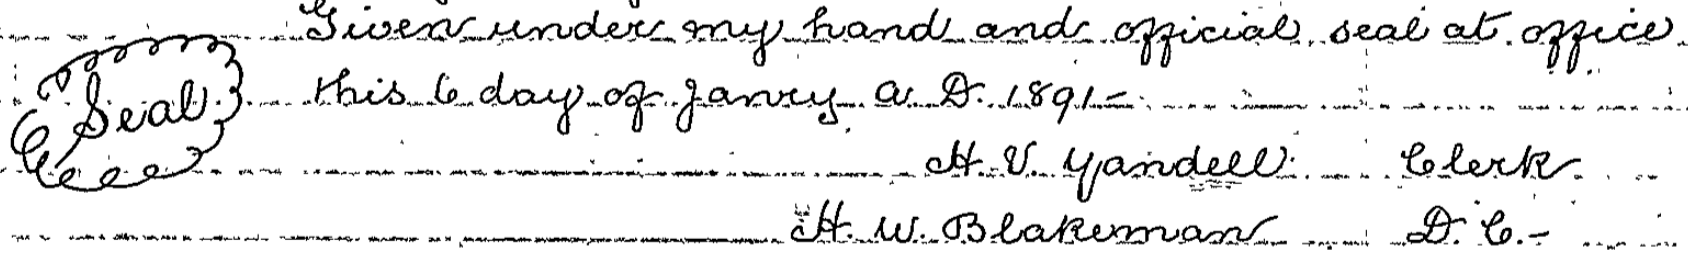 Given under my hand and official seal at office
Seal this 6 day of Janry A. D. 1891-
H. V. Yandell Clerk
H. W. Blakeman D. C.-